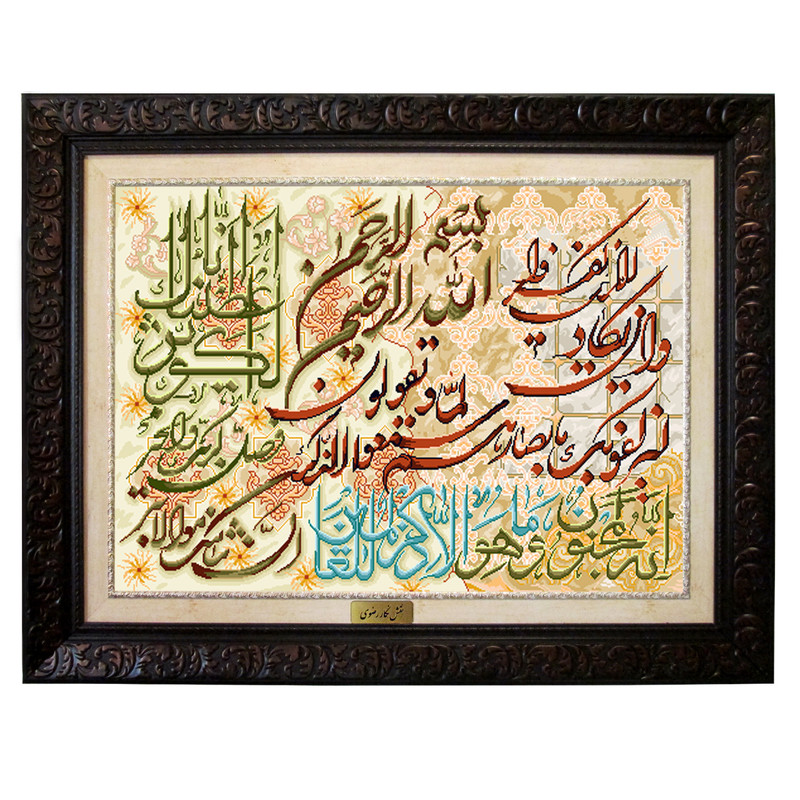 بسم الله الرحمن الرحيم
وان يكاد الذين كفروا
ليزلقونك بابصارهم
لما سمعوا الذكر ويقولون
انه لمجنون وما هو الا ذكر للعالمين
انا اعطيناك الكوثر
فصل لربك وانحر
ان شانئك هو الابتر
نقش نگار رضوی